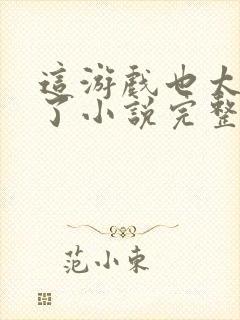 這游戲也太
了小說完整
范小東